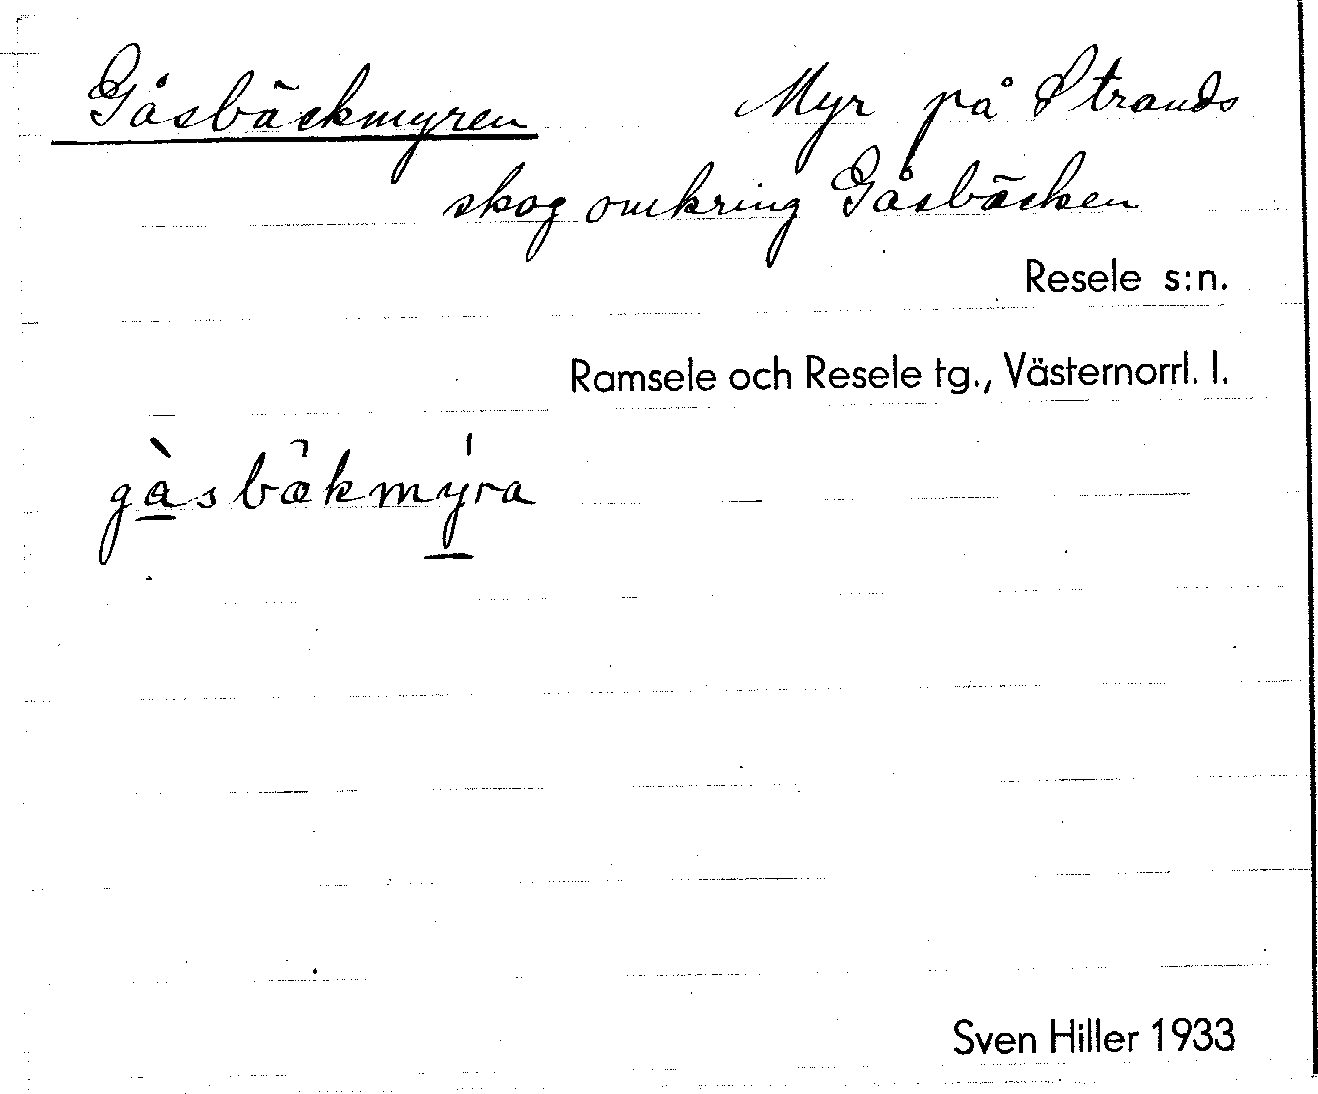 Gåsbäckmyren Myr på Strands
skog omkring Gåsbäcken
Resele s:n.
Ramsele och Resele tg., Västernorrl. l.
gàsbäkmýra
Sven Hiller 1933